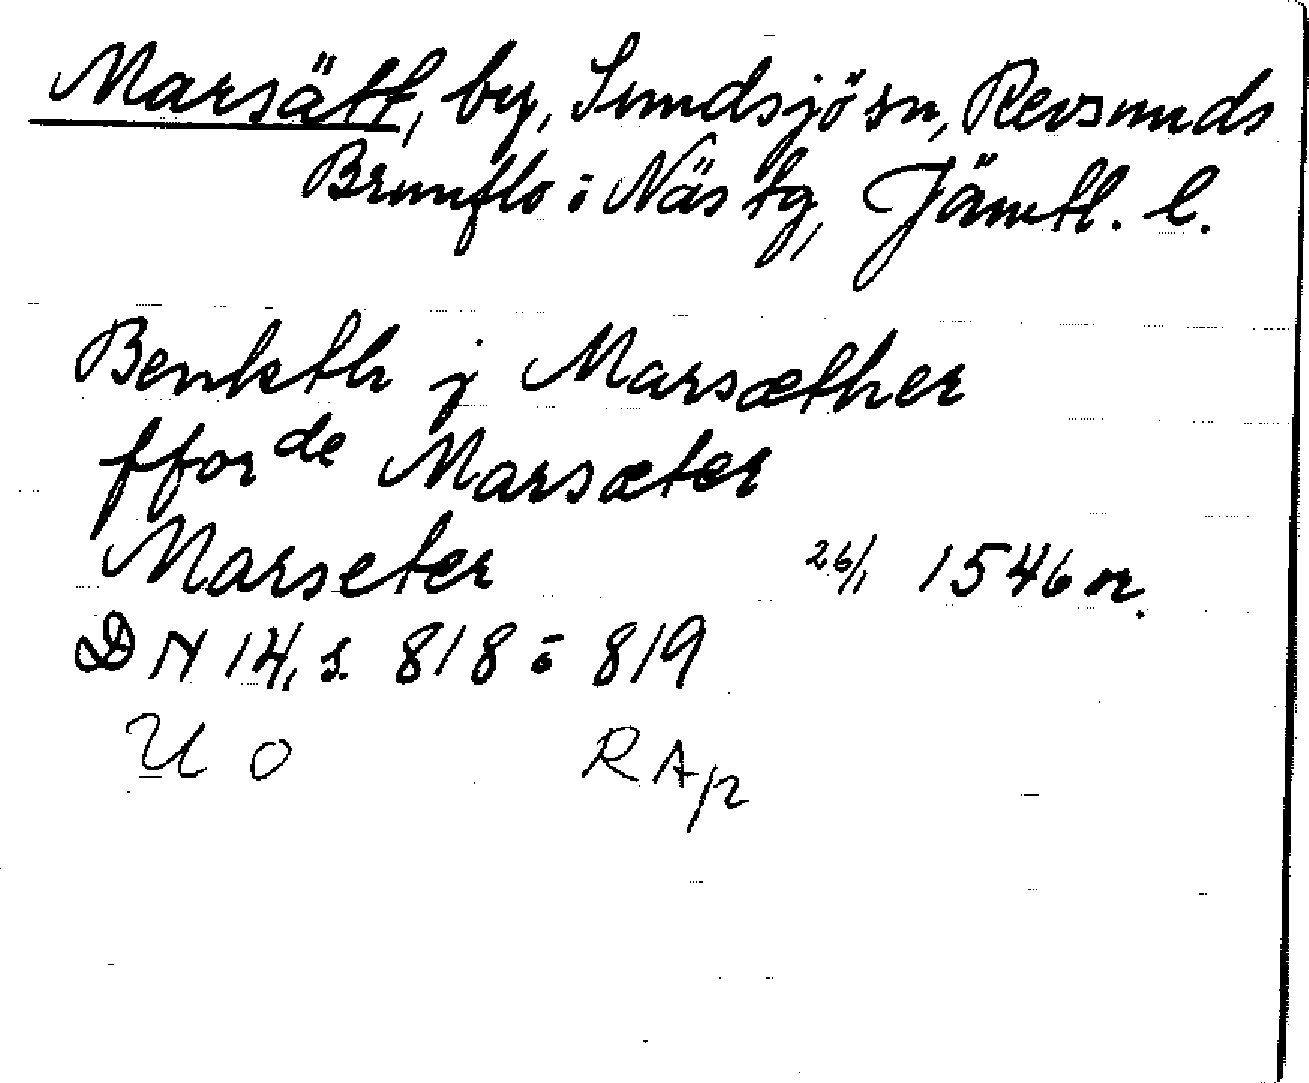 Marsätt, by, Sundsjö sn, Revsunds
Brunflo o Näs tg, Jämtl. l.
Benkth j Marsæther
ffor de Marsæter
Marseter 26/1 1546 or.
DN 14, s. 818 o 819
U O RAp